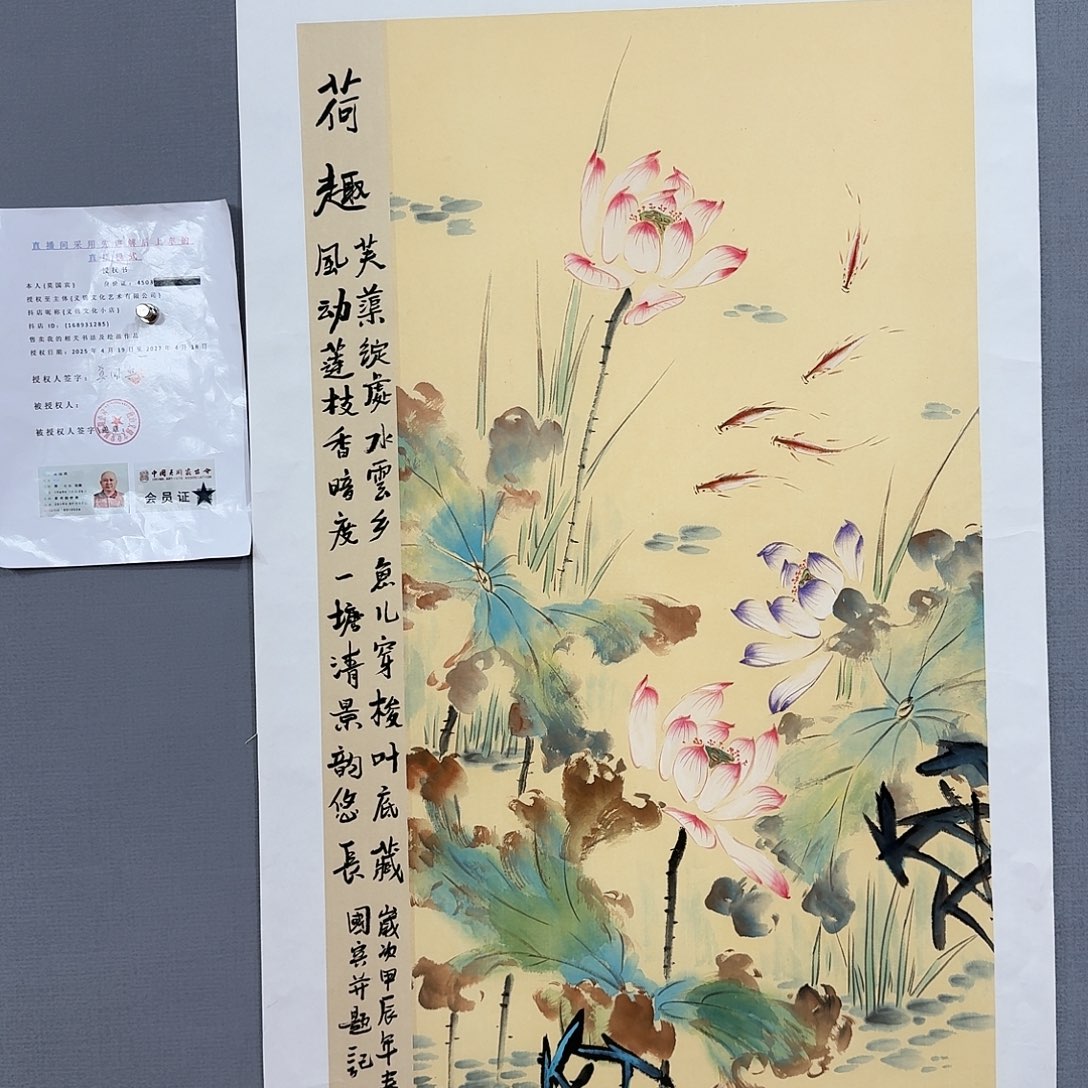 荷趣
芙蕖綻處水雲乡魚儿穿梭叶底藏
風动莲枝香暗度一塘清景韵悠長
歲次甲辰年春
國宾并题記
直播间采用先
直
授权书
本人(莫国宾) 身份证:450
授权至主体(义 文化艺术有限公司)
抖店昵称(义 文化小店)
抖店 ID:(168931285)
售卖我的相关书法及绘画作品
授权日期:2025年4月19日至2027年4月18日
授权人签字:
被授权人:
被授权人签字 盖章:
会员证